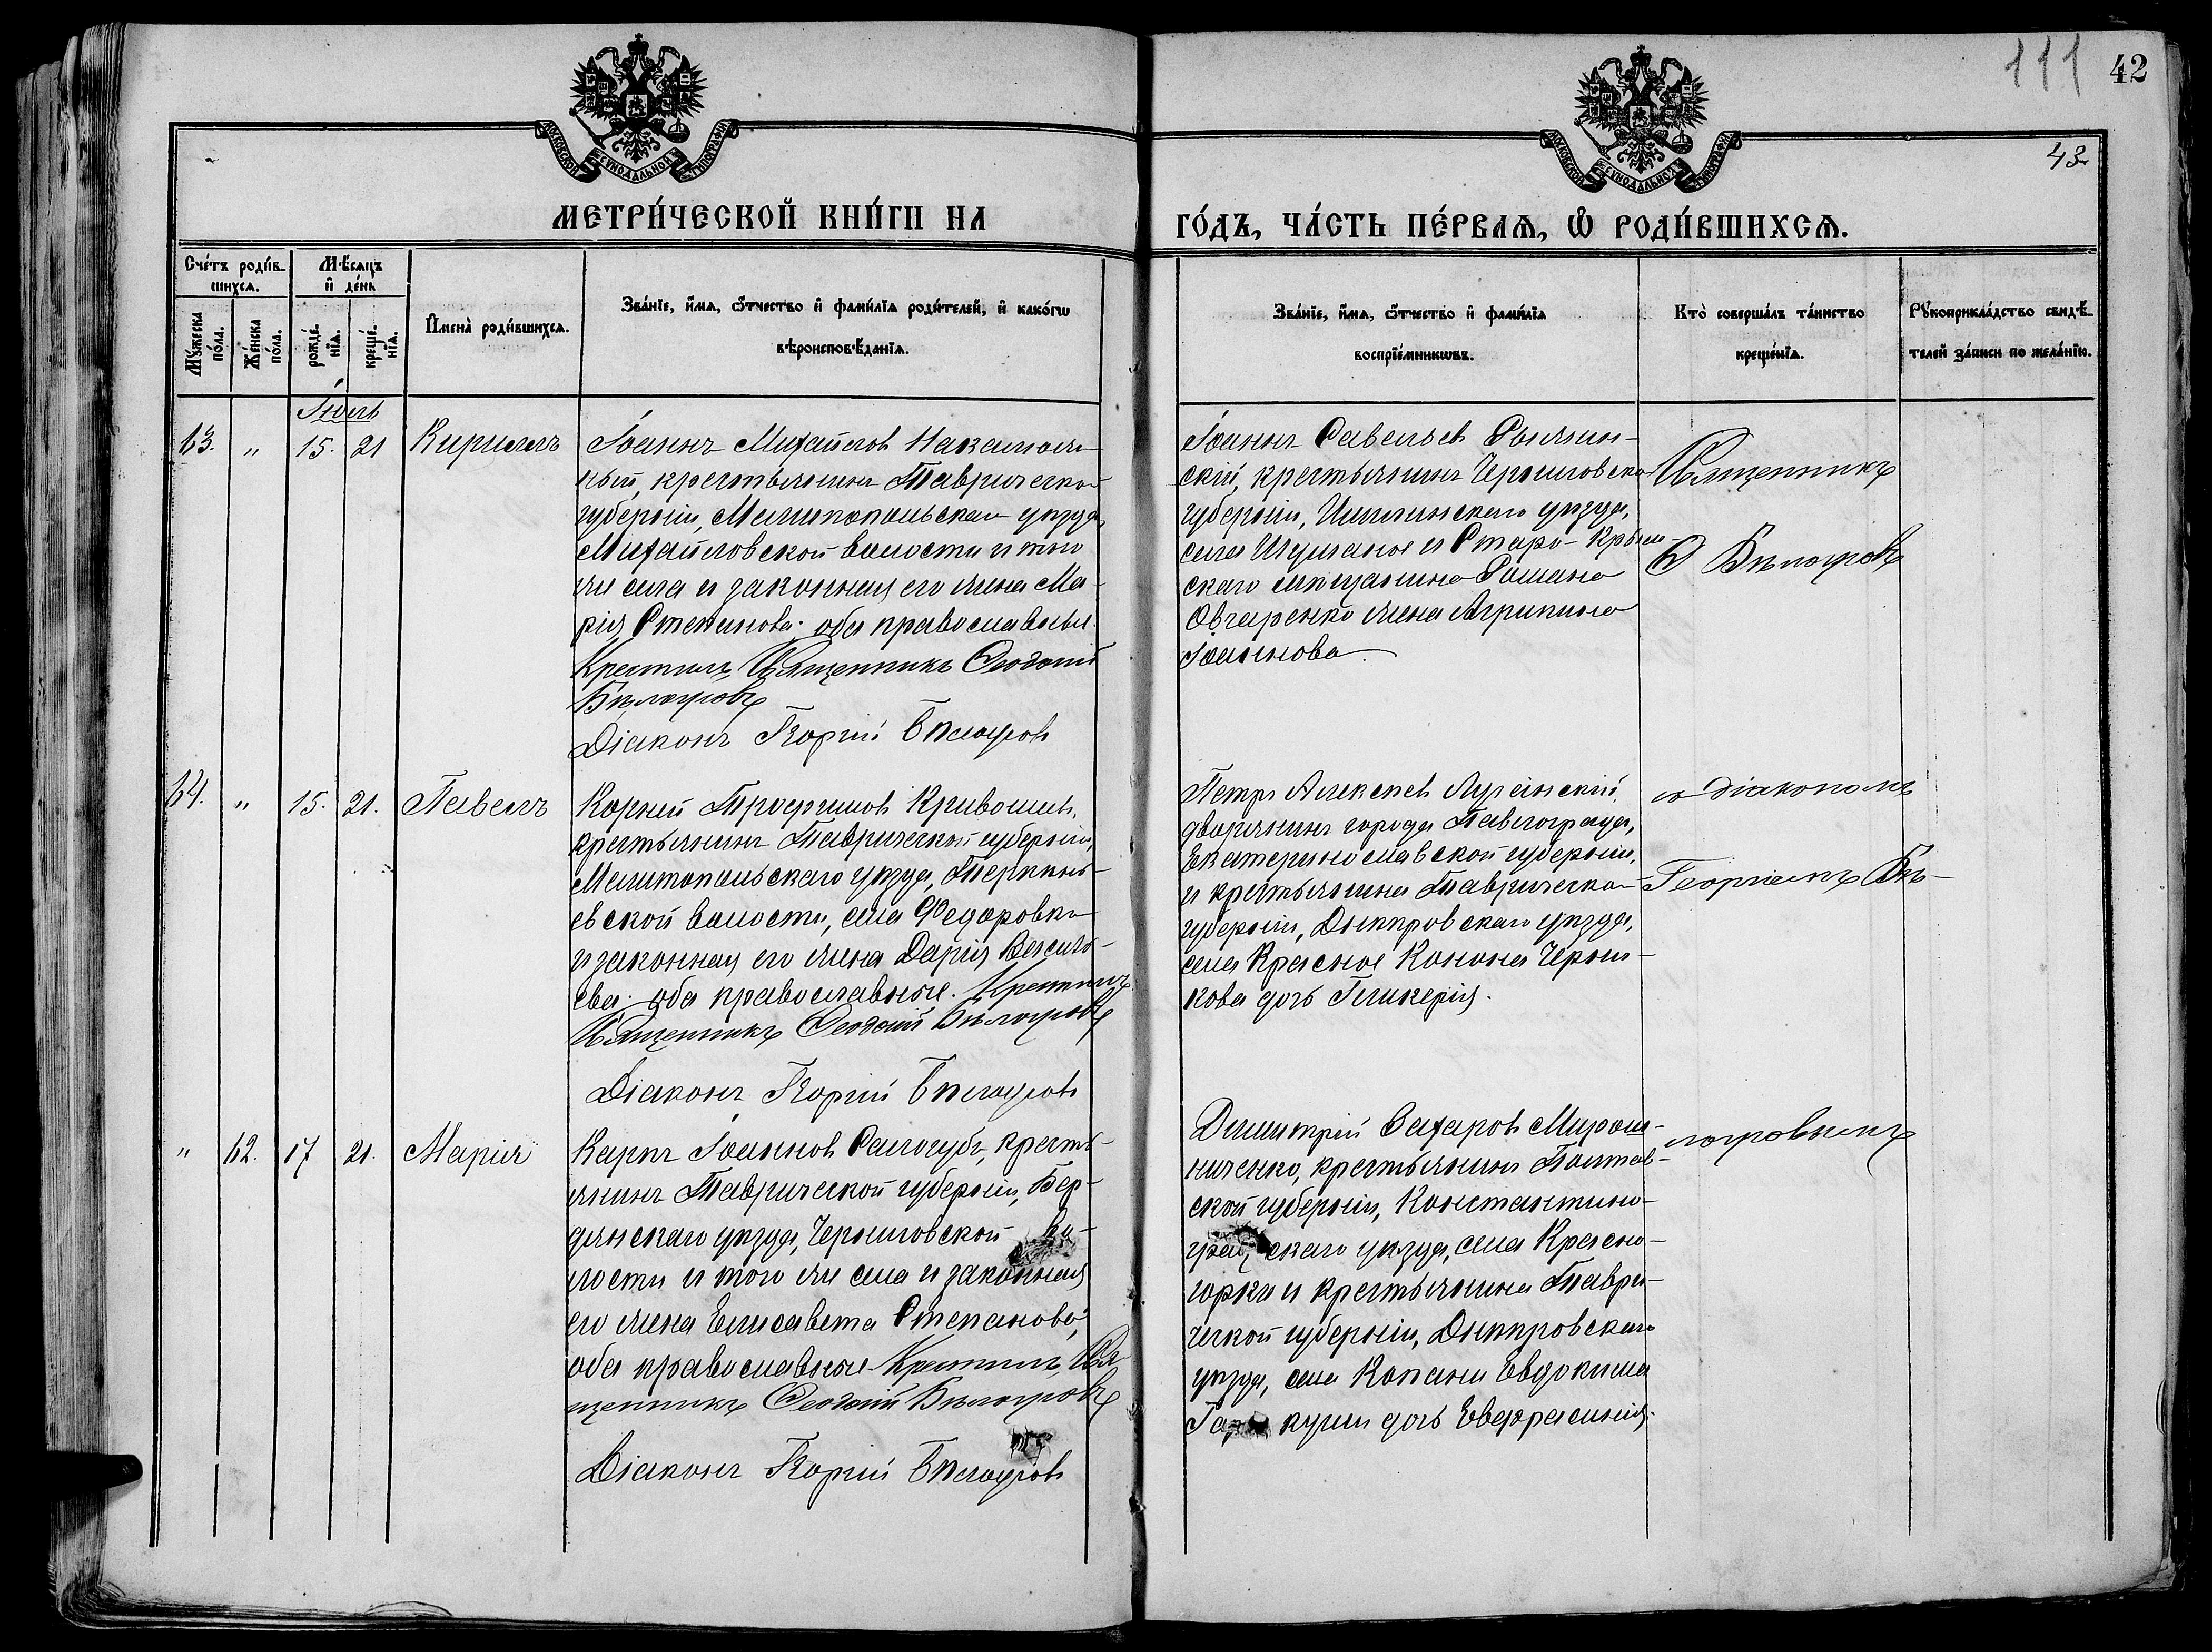 111
42
43
МОСКОВСКОЙ СѴНОДАЛЬНОЙ ТИПОГРАФІИ
МОСКОВСКОЙ СѴНОДАЛЬНОЙ ТИПОГРАФІИ
МЕТРИ́ЧЕСКОЙ КНИ́ГИ НА
ГО́ДЪ, ЧА́СТЬ ПЕ́РВАѦ, Ѡ҆ РОДИ́ВШИХСѦ.
Сче́тъ роди́в-
шихсѧ.
Мѣ́сѧцъ
и҆ де́нь
Мꙋ́жеска по́ла.
Же́нска по́ла.
рожде́нїѧ.
креще́нїѧ.
И҆мена̀ роди́вшихсѧ.
Зва́нїе, и҆́мѧ, ѻ҆́тчество и҆ фами́лїѧ роди́телей, и҆ како́гѡ
вѣроисповѣ́данїѧ.
Зва́нїе, и҆́мѧ, ѻ҆́тчество и҆ фами́лїѧ
воспрїе́мникѡвъ.
Кто̀ соверша́лъ та́инство
креще́нїѧ.
Рꙋкоприкла́дство свидѣ́-
телей за́писи по жела́нїю.
Іюль
63. " 15. 21 Кириллъ
Іоаннъ Михайловъ
ный, крестьянинъ Таврической
губерніи, Мелитопольскаго уѣзда,
Михайловской волости и того
же села и законная его жена Ма-
рія Степанова. оба православные.
Крестилъ Священникъ Ѳеодосій
Бѣлоусовъ
Діаконъ Георгій Бѣлоусовъ
Іоаннъ Савельевъ
скій, крестьянинъ Черниговской
губерніи, уѣзда,
села и Старо-Крым-
скаго мѣщанина Романа
Овчаренко жена Агрипина
Іоаннова.
Священникъ
Ѳ Бѣлоусовъ
64. " 15. 21. Павелъ
Корний Трофимовъ Кривошеи,
крестьянинъ Таврической губерніи,
Мелитопольскаго уѣзда,
евской волости, села Федоровки
и законная его жена Дарія Василь-
ева. оба православные. Крестилъ
Священникъ Ѳеодосій Бѣлоусовъ
Діаконъ Георгій Бѣлоусовъ
Петръ Алексѣевъ
дворянинъ города Павлограда,
Екатеринославской губерніи,
и крестьянина Таврической
губерніи, Днѣпровскаго уѣзда,
села Красное Конона Черни-
кова дочь Гликерія.
съ діакономъ
Георгіемъ Бѣ-
" 62. 17 21. Марія
Карпъ Іоанновъ Самогубъ, кресть-
янинъ Таврической губерніи, Бер-
дянскаго уѣзда, Черниговской во-
лости и того же села и законная
его жена Елисавета Степанова,
оба православные. Крестилъ Свя-
щенникъ Ѳеодосій Бѣлоусовъ
Діаконъ Георгій Бѣлоусовъ
Димитрій Захаровъ Мирош-
ниченко, крестьянинъ Полтав-
ской губерніи, Константино-
градскаго уѣзда, села Красно-
горки и крестьянина Таври-
ческой губерніи, Днѣпровскаго
уѣзда, села Копани Евдокима
дочь Евфросинія.
лоусовымъ